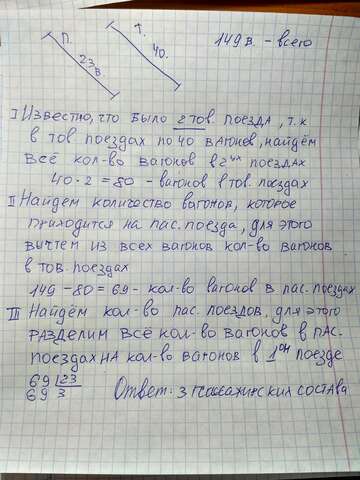 П. Т. 149 в. - всего
23 в 40.
I Известно, что было 2 тов. поезда, т.к
в тов поездах по 40 вагонов, найдём
всё кол-во вагонов в 2ух поездах
40 · 2 = 80 - вагонов в тов. поездах
II Найдем количество вагонов, которое
приходится на пас. поезда, для этого
вычтем из всех вагонов кол-во вагонов
в тов. поездах
149 - 80 = 69 - кол-во вагонов в пас. поездах
III Найдём кол-во пас. поездов, для этого
разделим всё кол-во вагонов в пас.
поездах на кол-во вагонов в 1ом поезде
69 23
69 3 Ответ: 3 состава